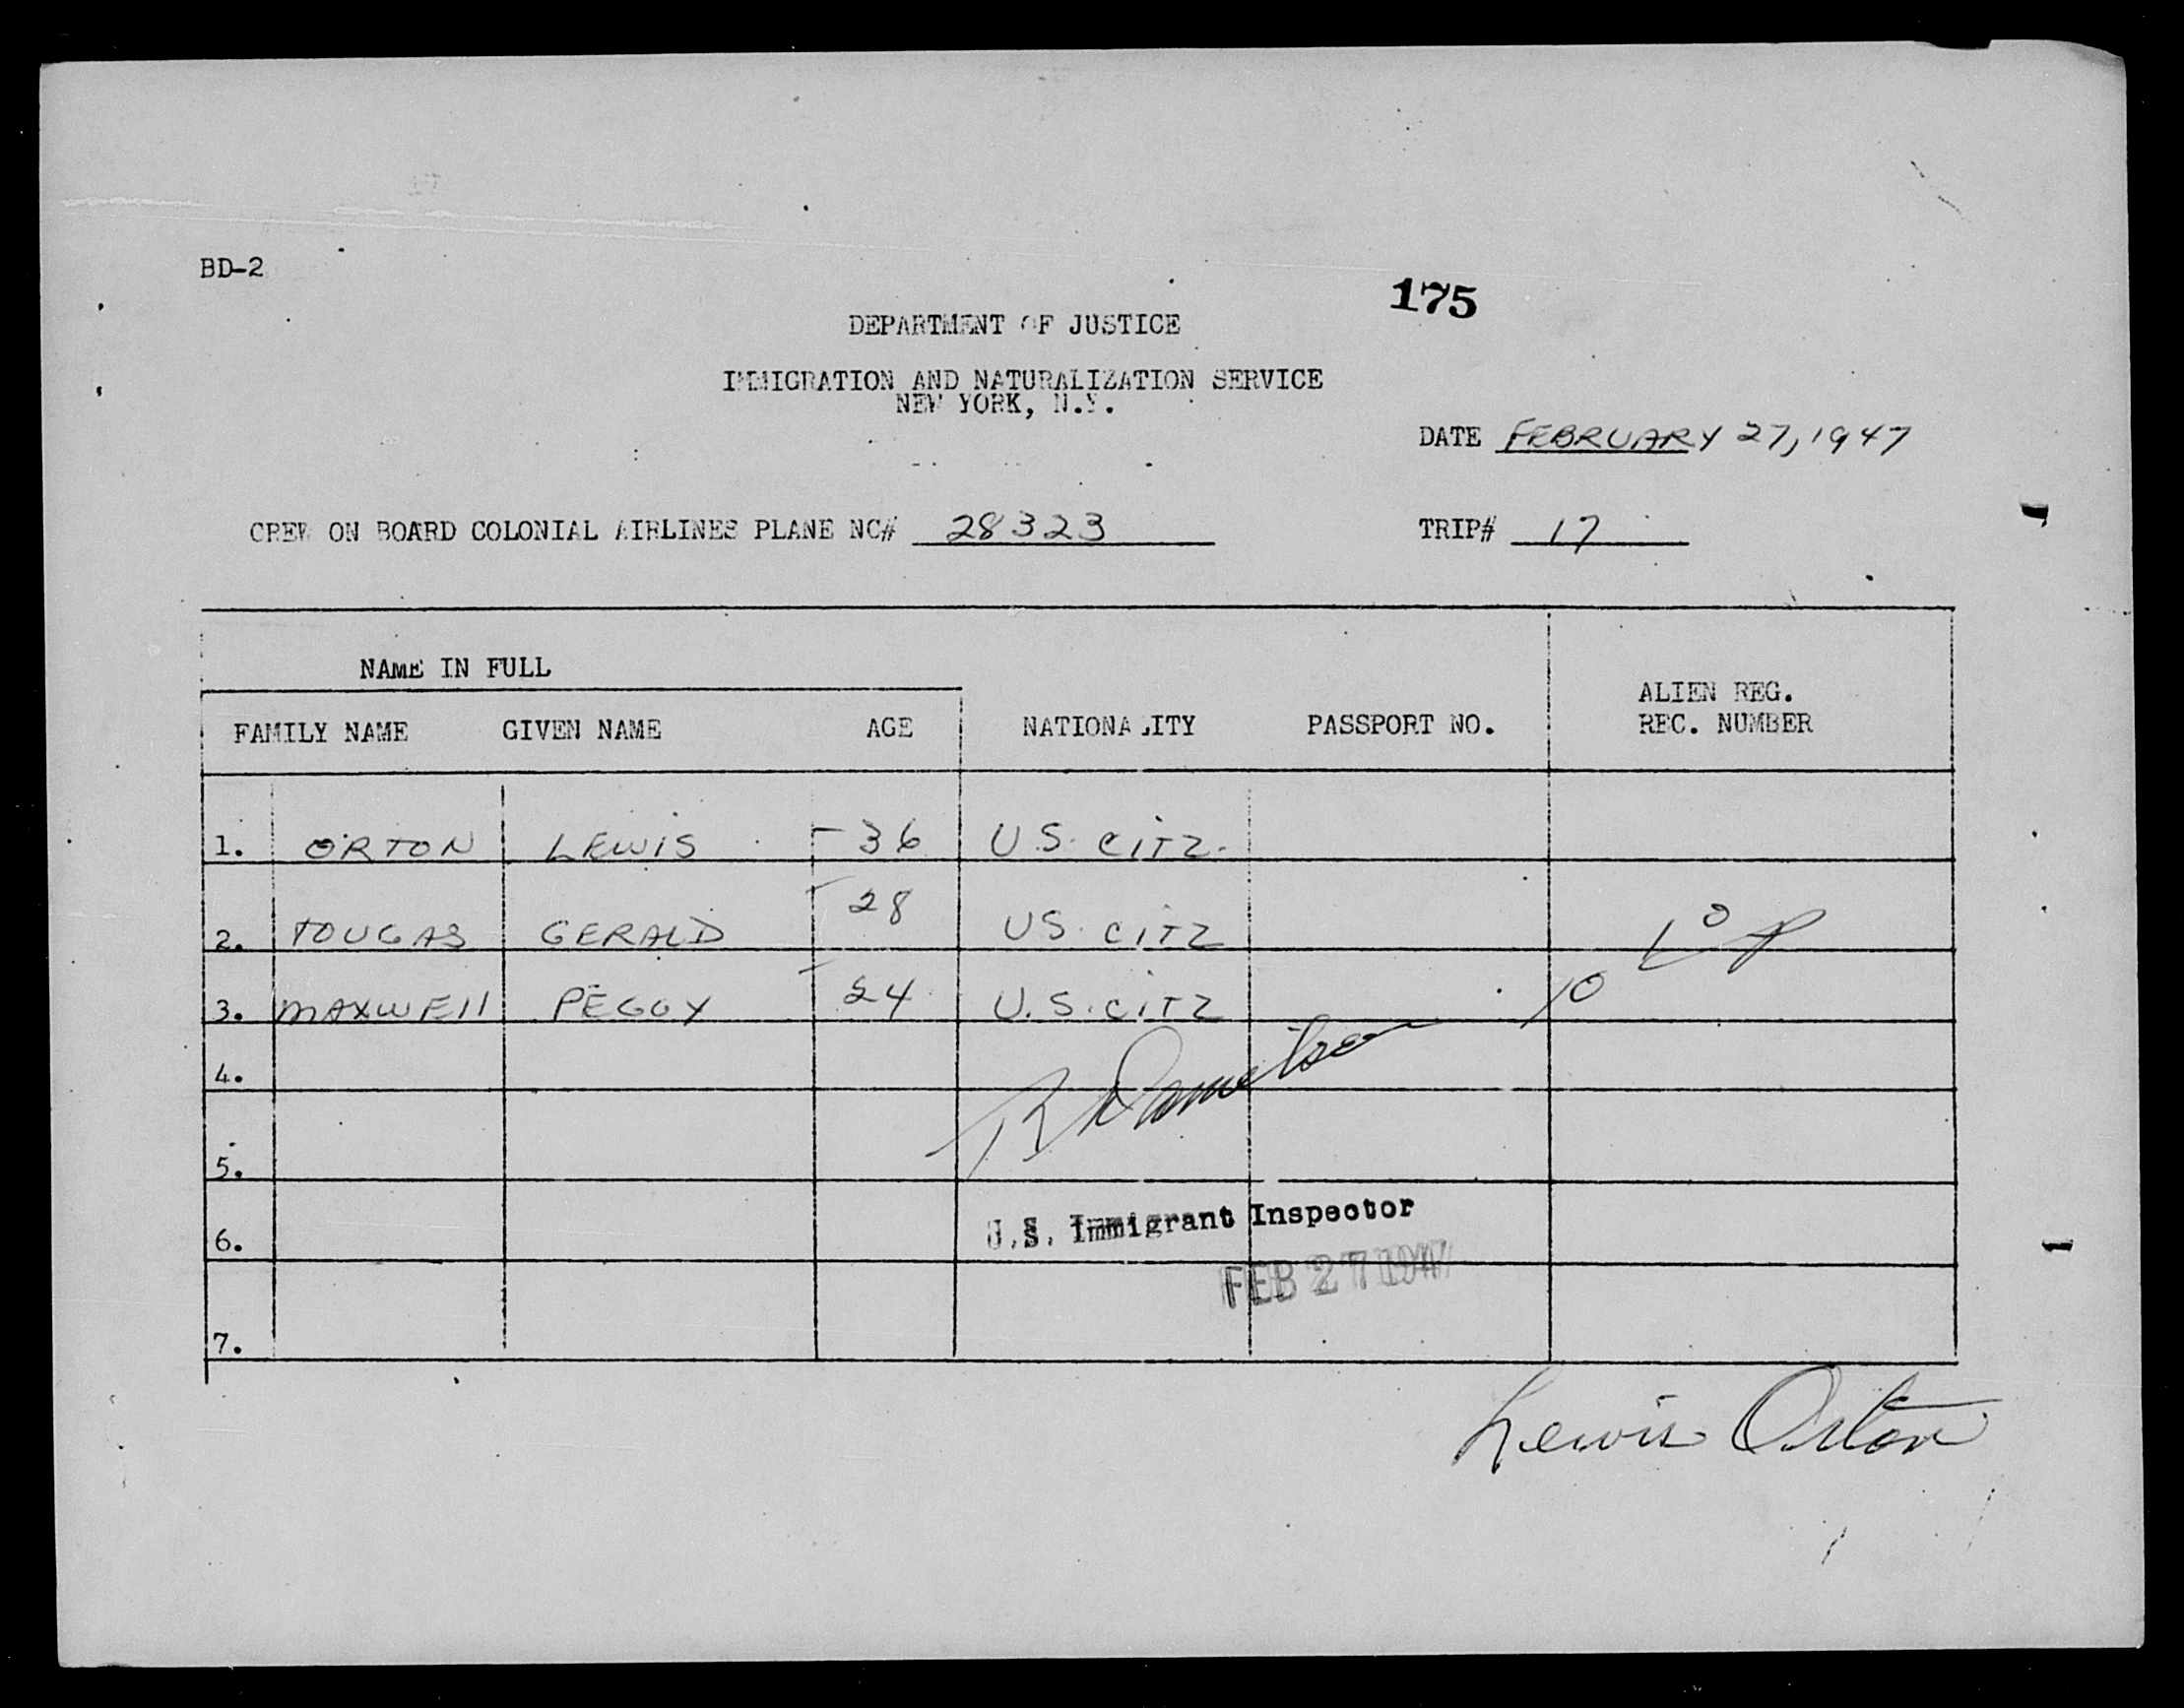 BD-2
175
DEPARTMENT OF JUSTICE
IMMIGRATION AND NATURALIZATION SERVICE
NEW YORK, N.Y.
DATE FEBRUARY 27, 1947
CREW ON BOARD COLONIAL AIRLINES PLANE NC# 28323 TRIP# 17
NAME IN FULL
ALIEN REG.
FAMILY NAME GIVEN NAME AGE NATIONALITY PASSPORT NO. REC. NUMBER
1. ORTON LEWIS 36 U.S. CITZ.
2. TOUGAS GERALD 28 US. CITZ
3. MAXWEll PEGGY 24 U.S. CITZ
4.
5.
6. U.S. Immigrant Inspector
FEB 27 1947
7.
Lewis Orton